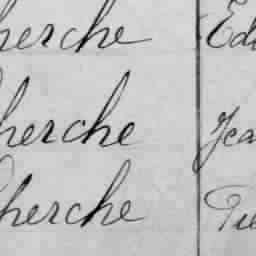 herche Edi
herche Jea
herche Pie